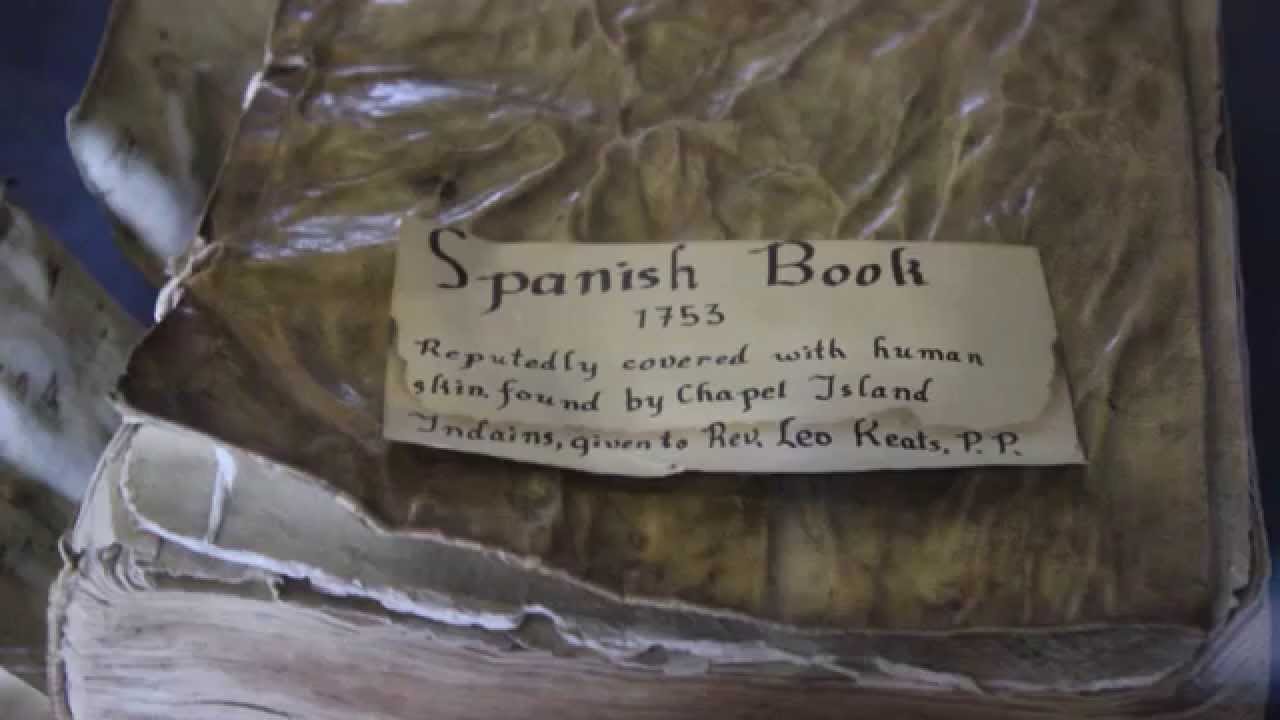 Spanish Book
1753
Reputedly covered with human
skin. found by Chapel Island
Indains, given to Rev. Leo Keats. P. P.